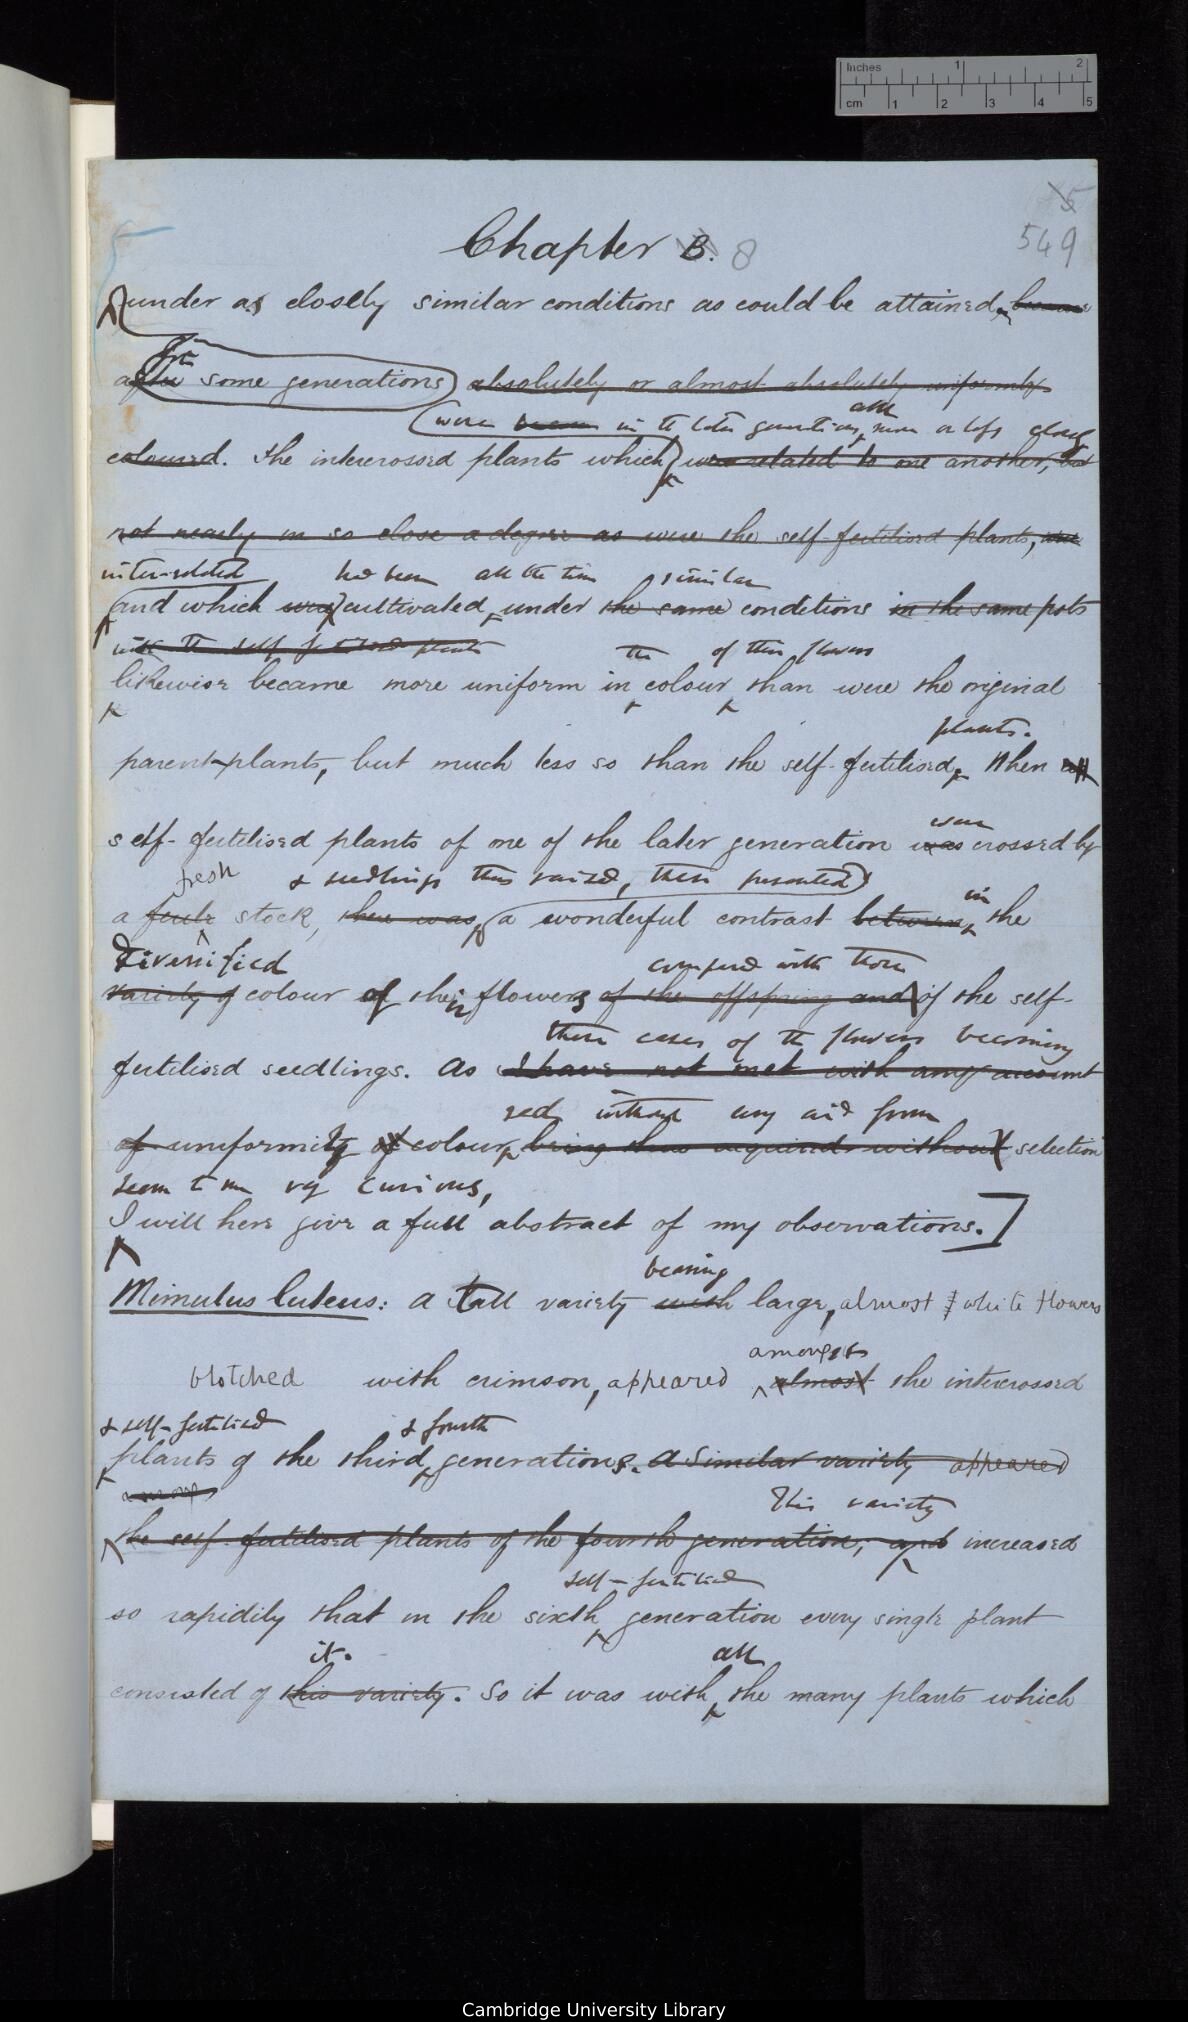 Inches 1 2
cm 1 2 3 4 5
5
549
Chapter B. 8
under as closely similar conditions as could be attained, became
for
after some generations absolutely or almost absolutely uniformly
were in the later generations all more or less closely
coloured. The intercrossed plants which were related to one another, but
not nearly in so close a degree as were the self-fertilised plants,
inter-related had been all the time similar
and which was cultivated under the same conditions in the same pots
with the self fertilised plants the of their flowers
likewise became more uniform in colour than were the original
plants.
parent-plants, but much less so than the self-fertilised. When
were
self-fertilised plants of one of the later generation was crossed by
fresh & seedlings thus raised, these presented
in
a stock, there was a wonderful contrast between the
diversified compared with those
variety of colour of their flowers of the offspring and of the self-
these cases of the flowers becoming
fertilised seedlings. As I have not met with any account
without any aid from
of uniformity of colour being thus acquired without selection
seem to me very curious,
I will here give a full abstract of my observations.]
bearing
Mimulus luteus: A tall variety with large, almost white flowers
amongst
blotched with crimson, appeared almost the intercrossed
& self-fertilised & fourth
plants of the third generations. A similar variety appeared
among
This variety
the self-fertilised plants of the fourth generation, and increased
self-fertilised
so rapidily that in the sixth generation every single plant
it. all
consisted of this variety. So it was with the many plants which
Cambridge University Library